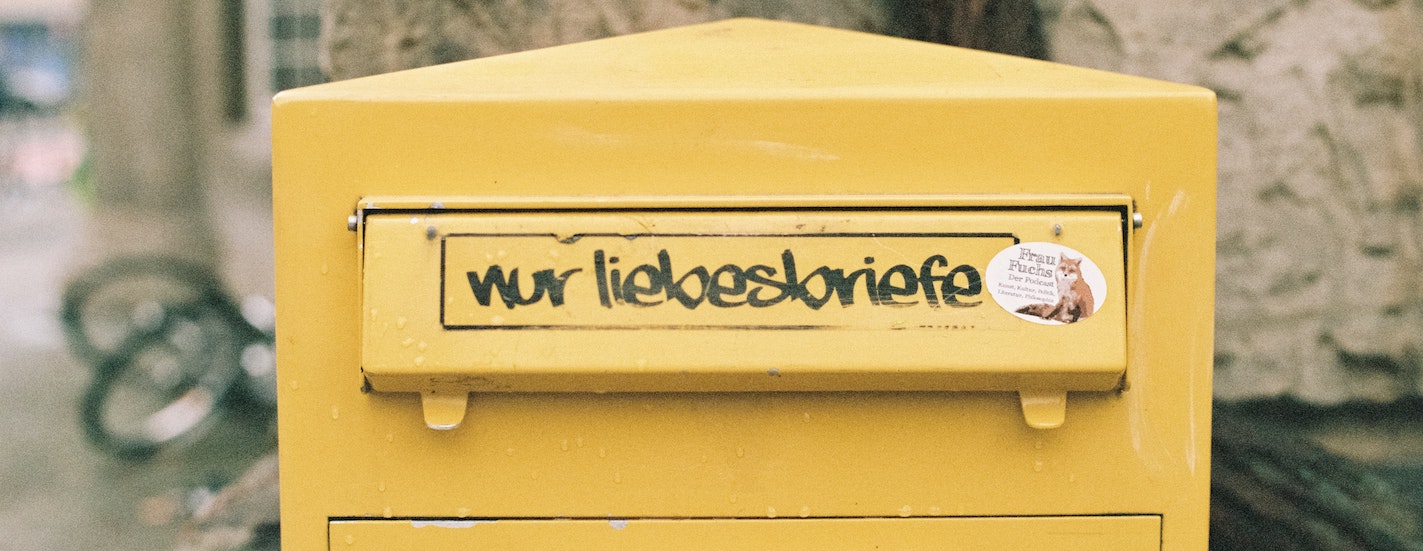 nur liebesbriefe
Frau
Fuchs
Der Podcast
Kunst, Kultur, Politik,
Literatur, Philosophie